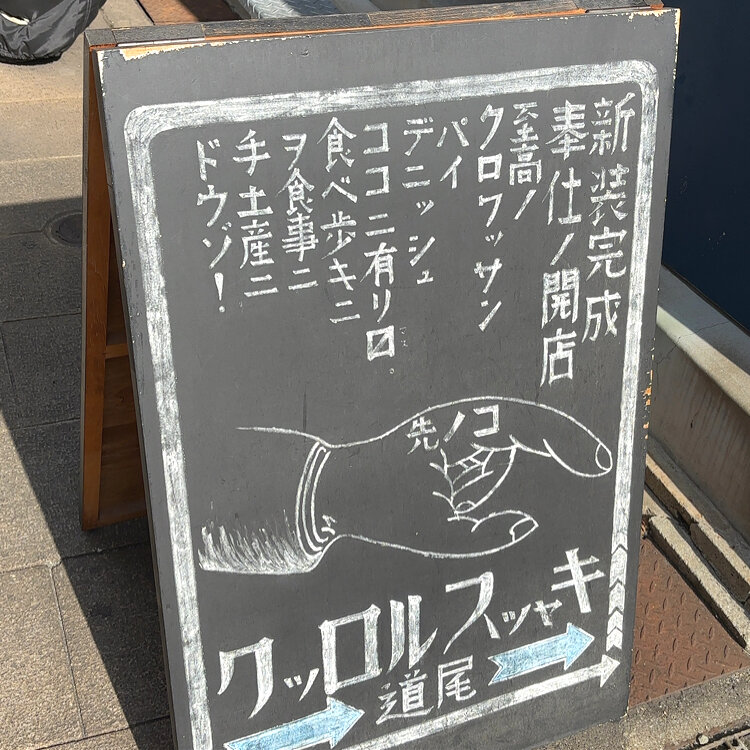 新装完成
奉仕ノ開店
至高ノ
クロワッサン
パイ
デニッシュ
ココニ有リ〼。
食ベ歩キニ
ヲ食事ニ
手土産ニ
ドウゾ！
コノ先
キャッスルロック
尾道